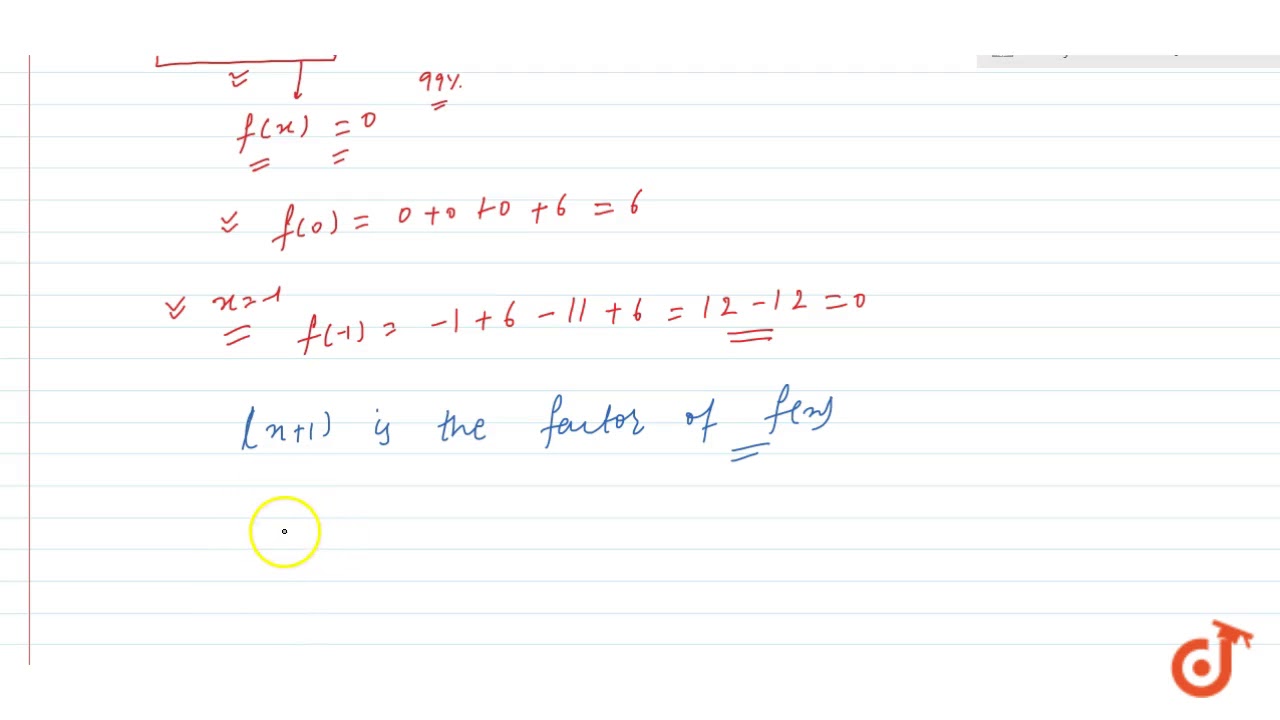 99%
f(x) = 0
f(0) = 0 + 0 + 0 + 6 = 6
x = -1
f(-1) = -1 + 6 - 11 + 6 = 12 - 12 = 0
(x+1) is the factor of f(x)